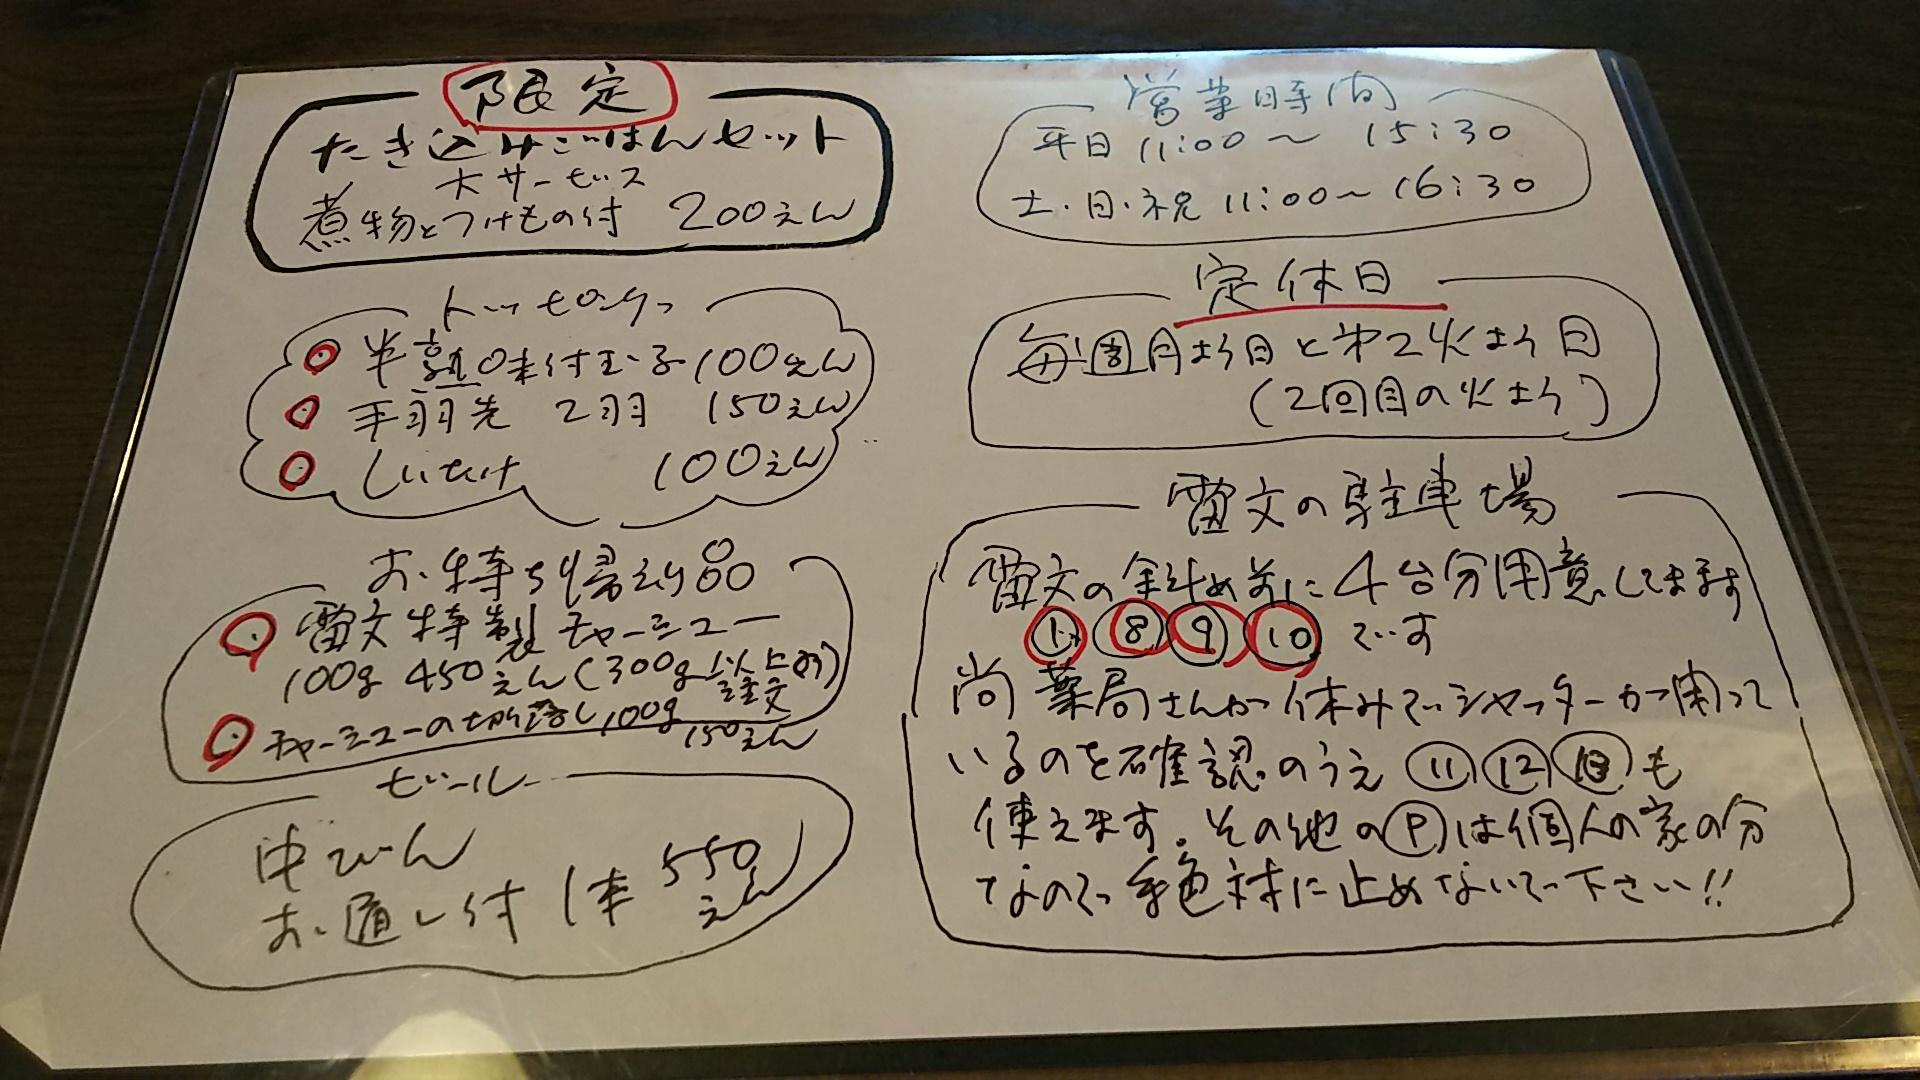 限定
たき込みごはんセット
大サービス
煮物とつけもの付 200えん
トッピング
半熟味付玉子100えん
手羽先 2羽 150えん
しいたけ 100えん
お持ち帰えり品
雷文特製チャーシュー
100g 450えん(300g以上より
注文
チャーシューの切り落し100g
150えん
ビール
中びん
お通し付 1本 550
えん
営業時間
平日 11:00〜 15:30
土・日・祝 11:00〜16:30
定休日
毎週月よう日と第2火よう日
(2回目の火よう)
雷文の駐車場
雷文の斜め前に4台分用意してます
①⑧⑨⑩です
尚薬局さんが休みでシャッターがっ閉って
いるのを確認のうえ⑪⑫も
使えます。その他のⓅは個人の家の分
なので絶対に止めないで下さい!!